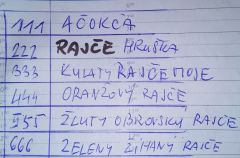 111 AČOKČA
222 RAJČE HRUŠKA
333 KULATÝ RAJČE MOJE
444 ORANŽOVÝ RAJČE
555 ŽLUTÝ OBROVSKÝ RAJČE
666 ZELENÝ ŽÍHANÝ RAJČE